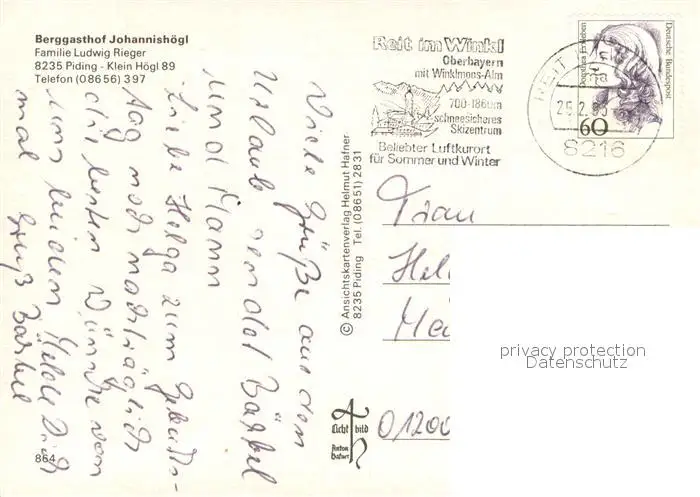 Berggasthof Johannishögl
Familie Ludwig Rieger
8235 Piding - Klein Högl 89
Telefon (08656) 397
Viele Grüße aus dem
Urlaub sendet Bärbel
und Mann
Liebe Helga zum Geburts-
tag noch nachträglich
die besten Wünsche von
uns beiden Melde Dich
mal Gruß Bärbel
864
© Ansichtskartenverlag Helmut Hafner
8235 Piding Tel. (08651) 2831
Licht bild
Anton
Hafner
Reit im Winkl
Oberbayern
mit Winklmoos-Alm
700-1860m
schneesicheres
Skizentrum
Beliebter Luftkurort
für Sommer und Winter
REIT IM
25.2.
8216
Dorothea Erxleben
Deutsche Bundespost
60
Frau
Hel
O 1200
privacy protection
Datenschutz